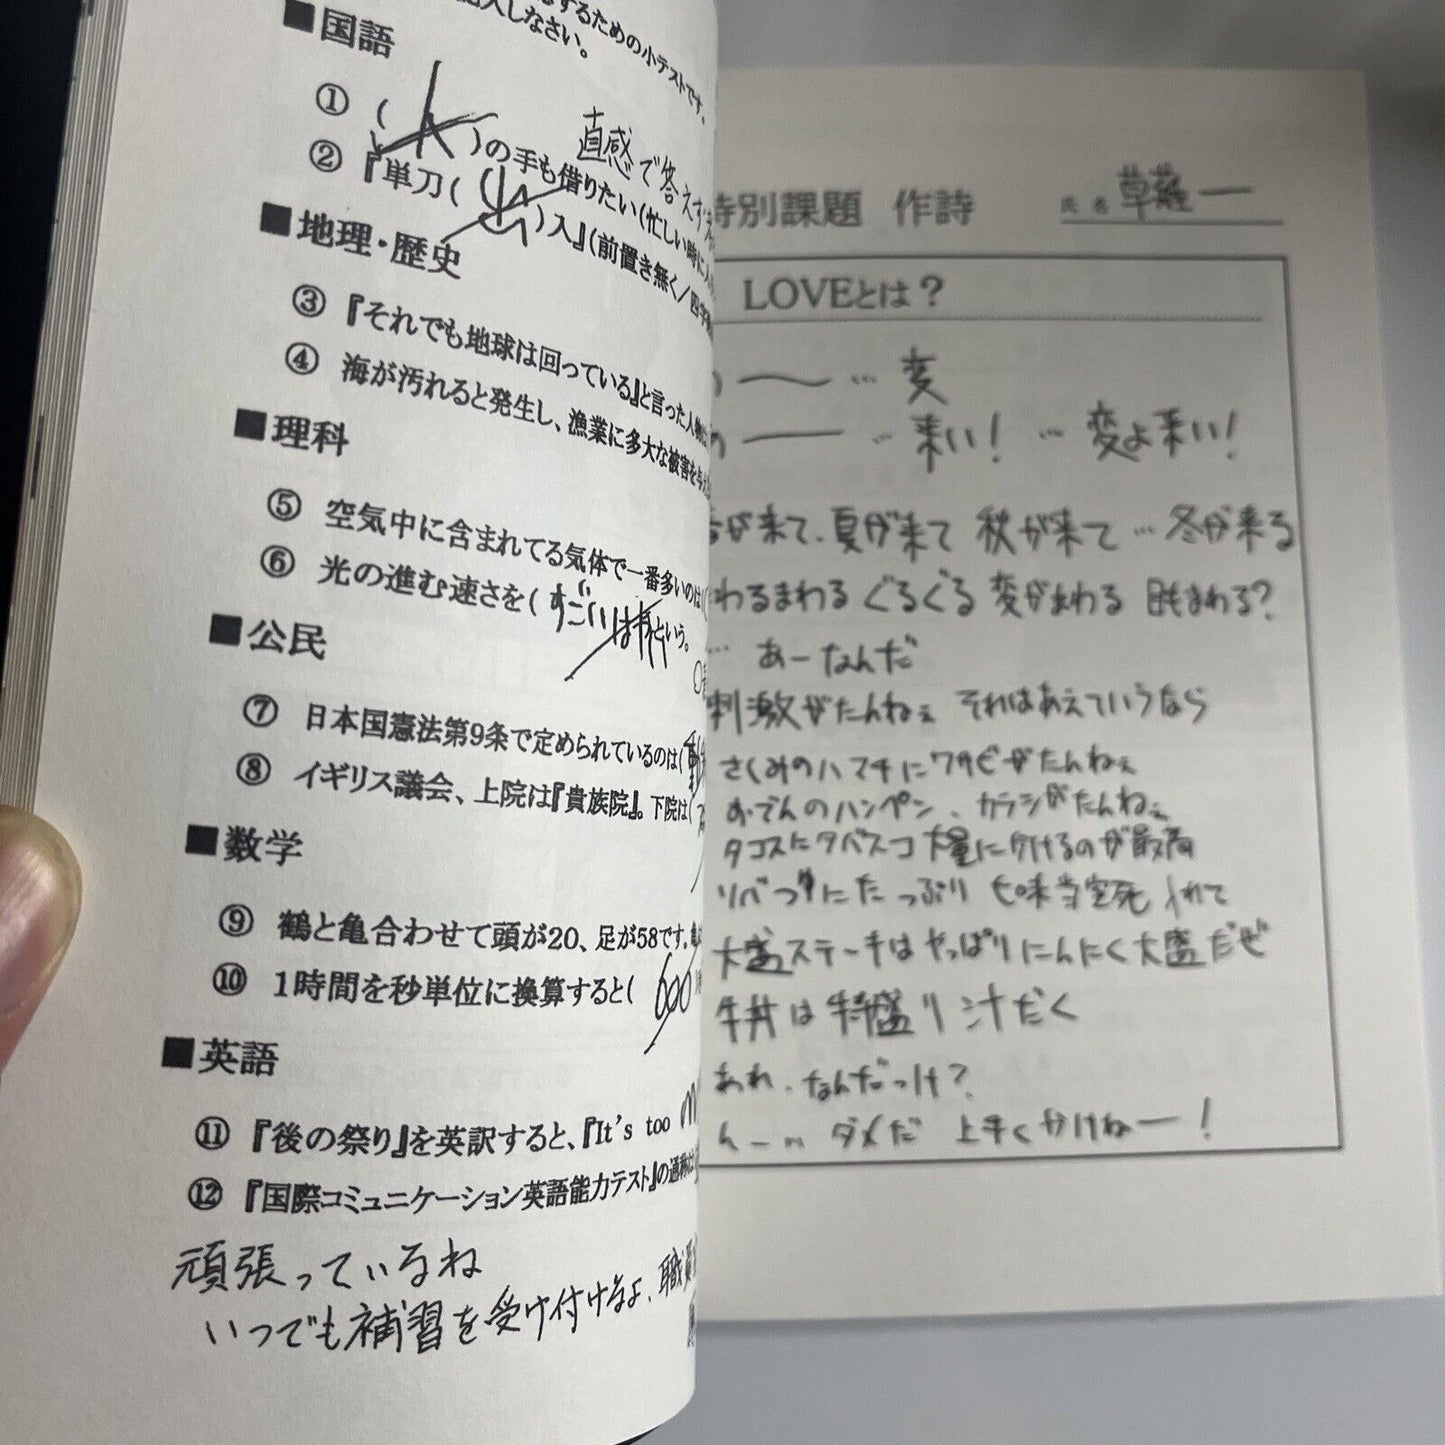 するための小テストです。
記入しなさい。
■国語
① (人)の手も借りたい(忙しい時に
② 『単刀( )入』(前置き無く/四字
直感で答えす
■地理・歴史
③ 『それでも地球は回っている』と言った人物は
④ 海が汚れると発生し、漁業に多大な被害を与え
■理科
⑤ 空気中に含まれてる気体で一番多いのは(
⑥ 光の進む速さを(すごいはやいという。
■公民
⑦ 日本国憲法第9条で定められているのは(
⑧ イギリス議会、上院は『貴族院』。下院は(
■数学
⑨ 鶴と亀合わせて頭が20、足が58です。亀
⑩ 1時間を秒単位に換算すると( 600
■英語
⑪ 『後の祭り』を英訳すると、『It's too m
⑫ 『国際コミュニケーション英語能力テスト』の通称は
頑張っているね
いつでも補習を受け付けるよ、職員
特別課題 作詩
氏名 草薙一
LOVEとは?
の ー … 変
の ー … 来い! … 変よ来い!
春が来て、夏が来て 秋が来て … 冬が来る
まわるまわる ぐるぐる 変がまわる 目もまわる?
… あーなんだ
刺激がたんねぇ それはあえていうなら
さしみのハマチにワサビがたんねぇ
おでんのハンペン、カラシがたんねぇ
タコスにタバスコ大量にかけるのが最高
リバつゆにたっぷり七味当然入れて
大盛ステーキはやっぱりにんにく大盛だぜ
牛丼は特盛り汁だく
あれ、なんだっけ?
んー… ダメだ 上手くかけねー!